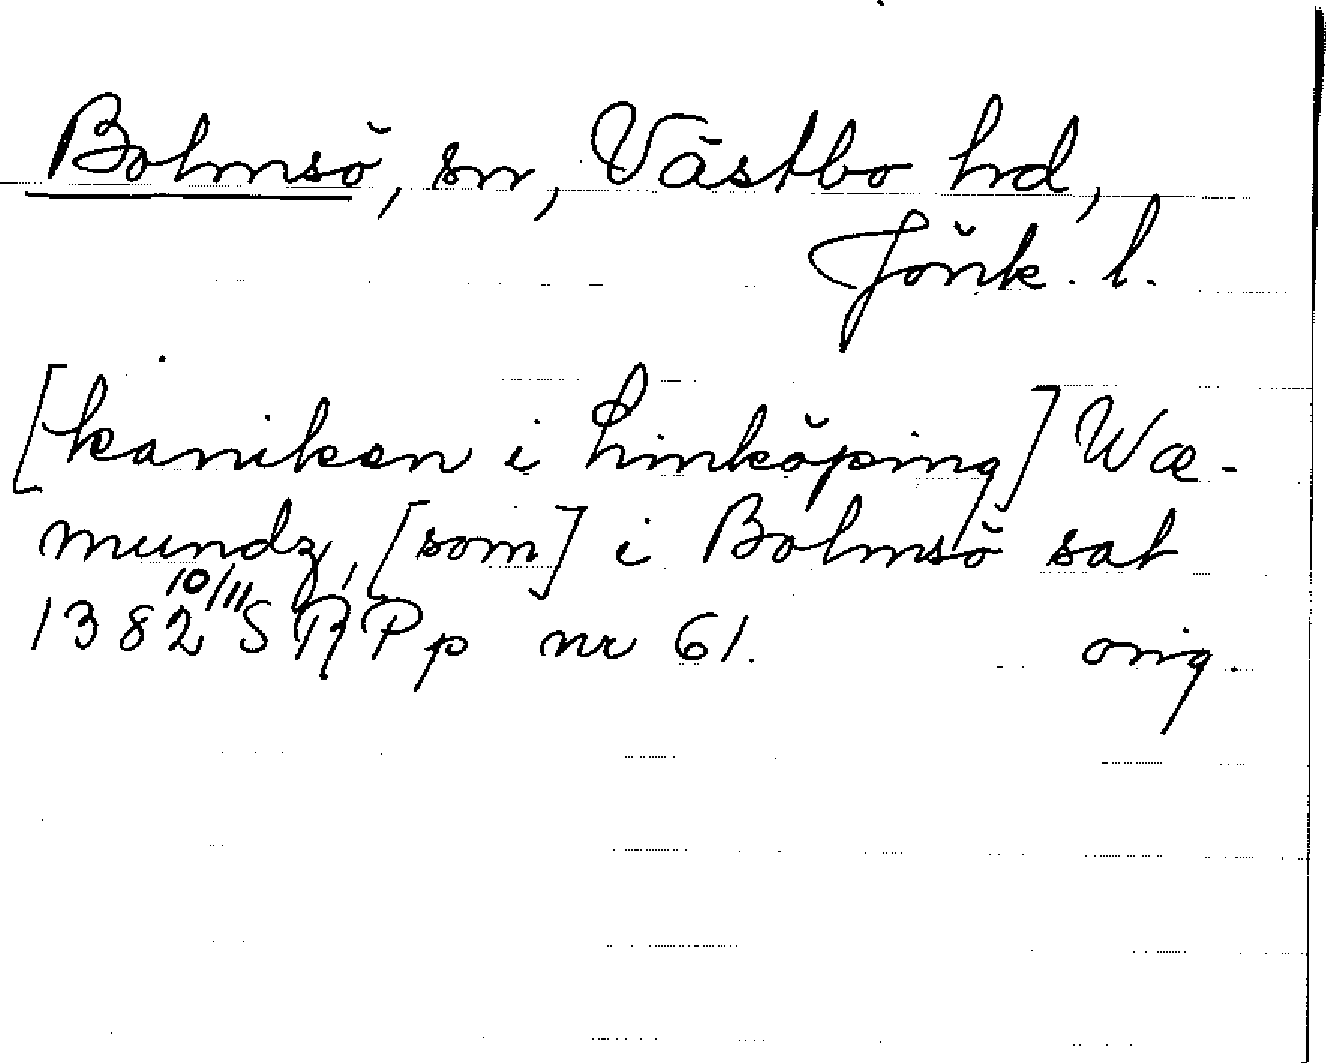 Bolmsö, sn, Västbo hd,
Jönk. l.
[kaniken i Linköping] Wæ-
mundz, [som] i Bolmsö sat
1382 10/11 SRPp nr 61. orig.